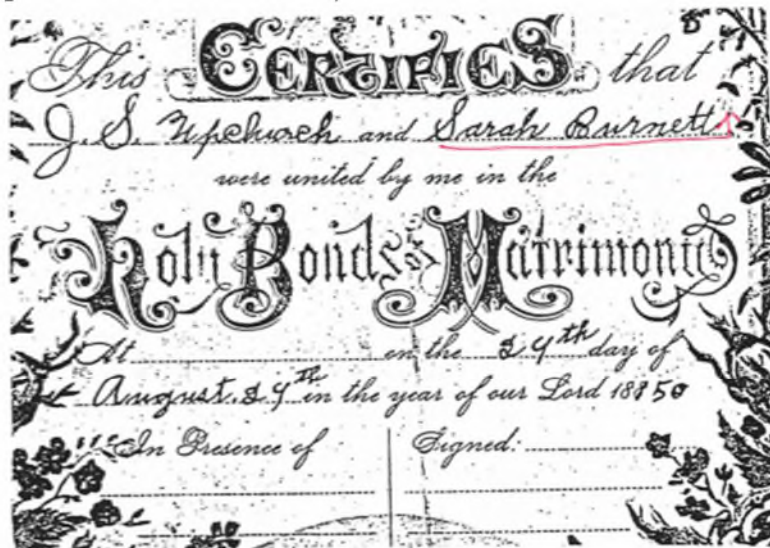 This CERTIFIES that
J. S. Upchurch and Sarah Burnett
were united by me in the
Holy Bonds of Matrimony
At on the 24th day of
August 24th in the year of our Lord 18850
In Presence of Signed: